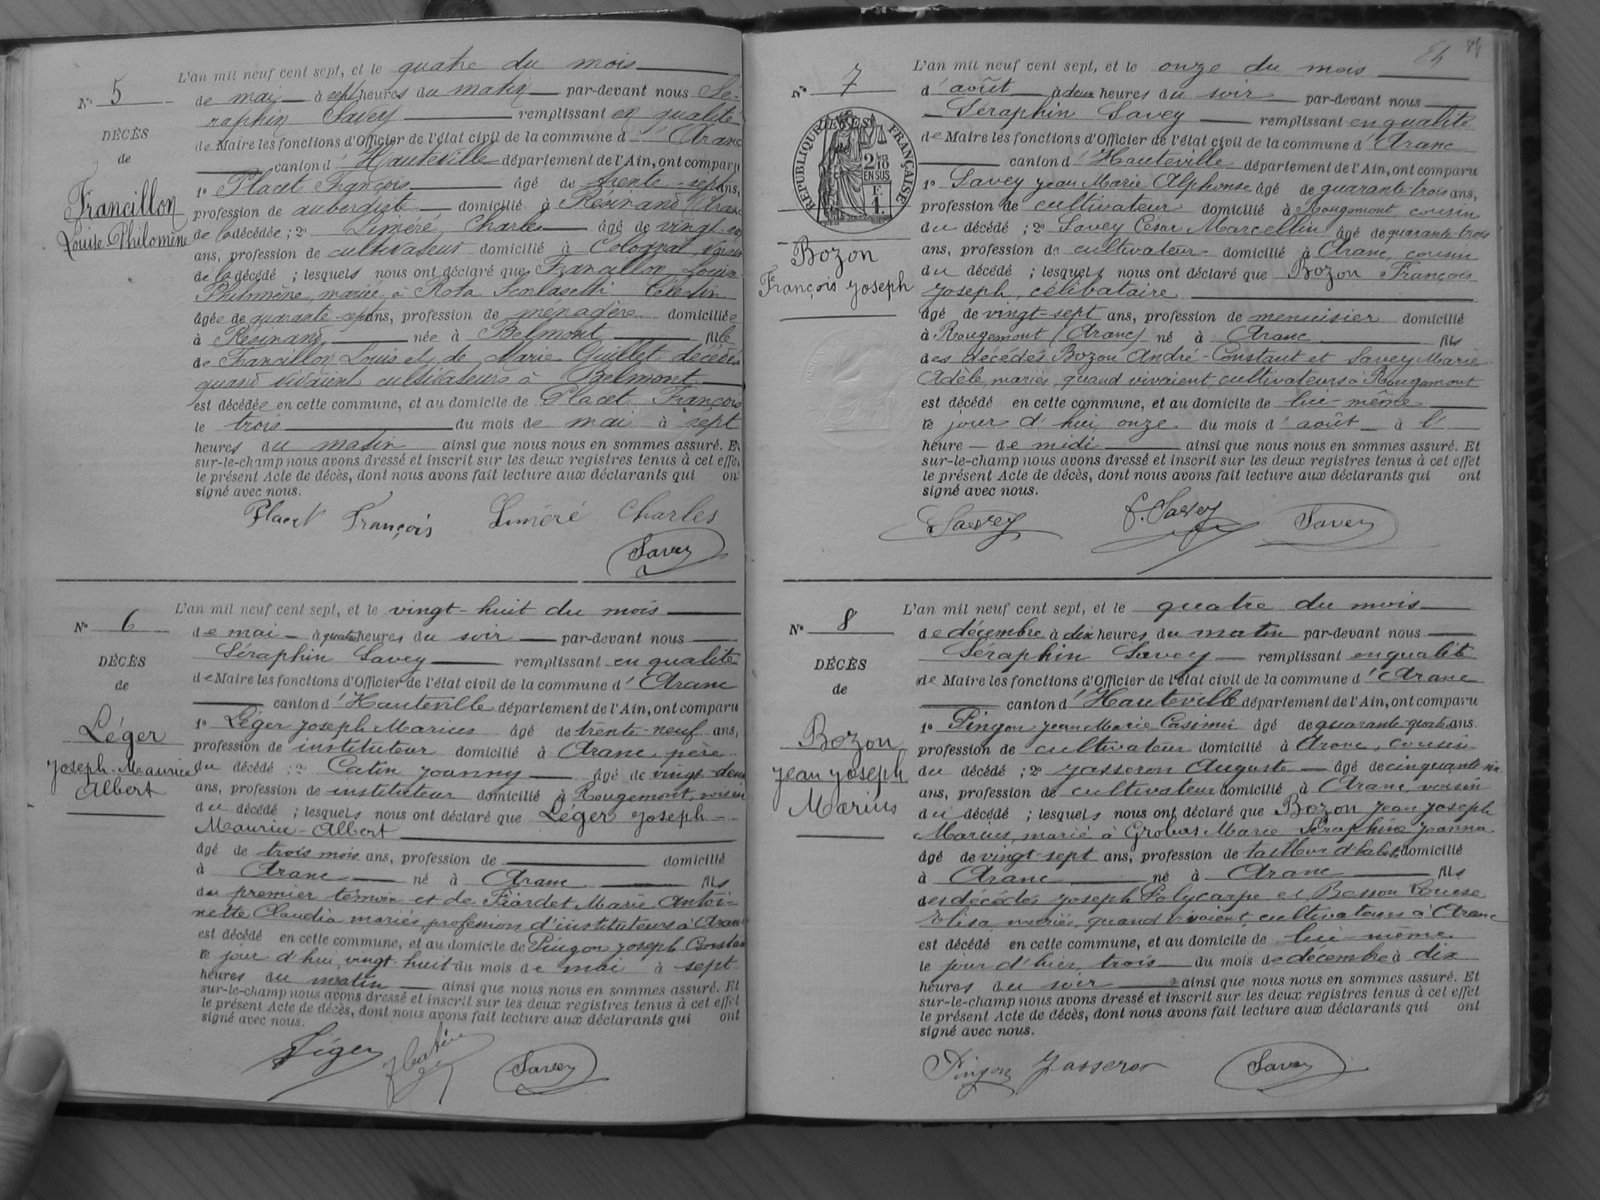 L'an mil neuf cent sept, et le quatre du mois
N° 5
de mai à sept heures du matin par-devant nous Sé-
raphin Savey remplissant en qualité
DÉCÈS
de Maire les fonctions d'Officier de l'état civil de la commune d'Aranc
de
canton d'Hauteville département de l'Ain, ont comparu
Francillon
Louise Philomène
1° Placet François âgé de trente-sept ans,
profession de aubergiste domicilié à Résinand (Aranc
de la décédée ; 2° Liméré Charles âgé de vingt
ans, profession de cultivateur domicilié à voisin
de la décédé ; lesquels nous ont déclaré que Francillon Louise
Philomène, mariée à Rota Célestin
âgée de quarante-sept ans, profession de ménagère domiciliée
à Résinand, née à Belmont fille
de Francillon Louis et de Marie Guillet décédés
quand vivaient cultivateurs à Belmont
est décédée en cette commune, et au domicile de Placet François
le trois du mois de mai à sept
heures du matin ainsi que nous nous en sommes assuré. Et
sur-le-champ nous avons dressé et inscrit sur les deux registres tenus à cet effet
le présent Acte de décès, dont nous avons fait lecture aux déclarants qui ont
signé avec nous.
Placet François Liméré Charles
Savey
L'an mil neuf cent sept, et le vingt-huit du mois
N° 6
de mai à quatre heures du soir par-devant nous
Séraphin Savey remplissant en qualité
DÉCÈS
de Maire les fonctions d'Officier de l'état civil de la commune d'Aranc
de
canton d'Hauteville département de l'Ain, ont comparu
Léger
Joseph-Maurice
Albert
1° Léger Joseph Marius âgé de trente-neuf ans,
profession de instituteur domicilié à Aranc, père
du décédé ; 2° Catin Joanny âgé de vingt-deux
ans, profession de instituteur domicilié à Rougemont, voisin
du décédé ; lesquels nous ont déclaré que Léger Joseph-
Maurice-Albert
âgé de trois mois ans, profession de domicilié
à Aranc né à Aranc fils
du premier témoin et de Marie Antoi-
nette Claudia mariés, profession d'instituteurs à Aranc
est décédé en cette commune, et au domicile de Pingon Joseph Constan
le jour d'hui vingt-huit du mois de mai à sept
heures du matin ainsi que nous nous en sommes assuré. Et
sur-le-champ nous avons dressé et inscrit sur les deux registres tenus à cet effet
le présent Acte de décès, dont nous avons fait lecture aux déclarants qui ont
signé avec nous.
Léger J Catin Savey
84
L'an mil neuf cent sept, et le onze du mois
N° 7
d'août à deux heures du soir par-devant nous
Séraphin Savey remplissant en qualité
de Maire les fonctions d'Officier de l'état civil de la commune d'Aranc
canton d'Hauteville département de l'Ain, ont comparu
RÉPUBLIQUE FRANÇAISE
2/10 EN SUS
Bozon
François Joseph
1° Savey Jean Marie Alphonse âgé de quarante-trois ans,
profession de cultivateur domicilié à Rougemont cousin
du décédé ; 2° Savey César Marcellin âgé de quarante-trois
ans, profession de cultivateur domicilié à Aranc, cousin
du décédé ; lesquels nous ont déclaré que Bozon François
Joseph, célibataire
âgé de vingt-sept ans, profession de menuisier domicilié
à Rougemont (Aranc) né à Aranc fils
des décédés Bozon André-Constant et Savey Marie
Adèle, mariés, quand vivaient cultivateurs à Rougemont
est décédé en cette commune, et au domicile de lui-même
le jour d'hui onze du mois d'août à l'
heure de midi ainsi que nous nous en sommes assuré. Et
sur-le-champ nous avons dressé et inscrit sur les deux registres tenus à cet effet
le présent Acte de décès, dont nous avons fait lecture aux déclarants qui ont
signé avec nous.
Savey Savey Savey
L'an mil neuf cent sept, et le quatre du mois
N° 8
de décembre à dix heures du matin par-devant nous
Séraphin Savey remplissant en qualité
DÉCÈS
de Maire les fonctions d'Officier de l'état civil de la commune d'Aranc
de
canton d'Hauteville département de l'Ain, ont comparu
Bozon
Jean Joseph
Marius
1° Pingon Jean Marie Casimir âgé de quarante-quatre ans,
profession de cultivateur domicilié à Aranc, cousin
du décédé ; 2° Jasseron Auguste âgé de cinquante-six
ans, profession de cultivateur domicilié à Aranc voisin
du décédé ; lesquels nous ont déclaré que Bozon Jean Joseph
Marius, marié à Marie Séraphine Joanna
âgé de vingt-sept ans, profession de tailleur d'habits, domicilié
à Aranc né à Aranc fils
des décédés Joseph Polycarpe et Besson Louise
Elisa, mariés, quand vivaient, cultivateurs à Aranc
est décédé en cette commune, et au domicile de lui-même
le jour d'hier, trois du mois de décembre à dix
heures du soir ainsi que nous nous en sommes assuré. Et
sur-le-champ nous avons dressé et inscrit sur les deux registres tenus à cet effet
le présent Acte de décès, dont nous avons fait lecture aux déclarants qui ont
signé avec nous.
Pingon Jasseron Savey